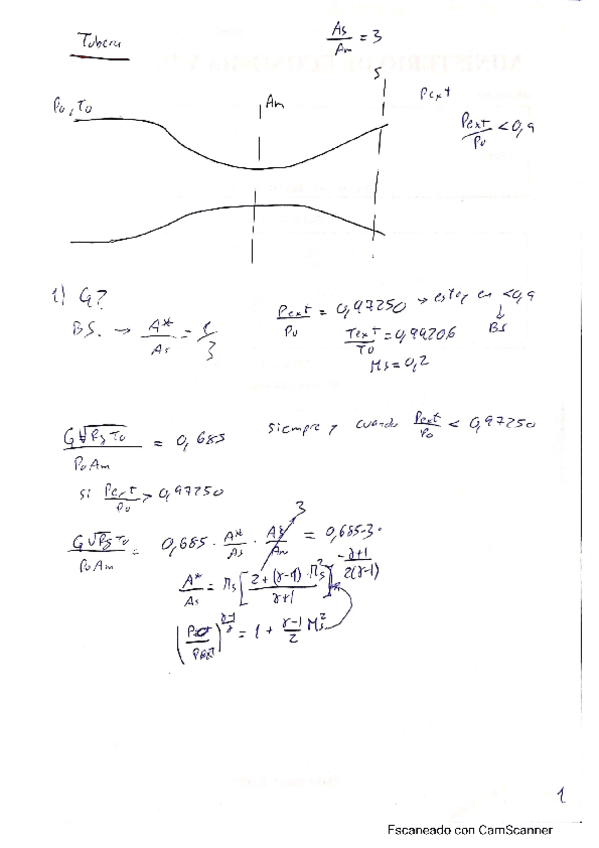 Tobera
As/Am = 3
S
Po, To
Am
Pext
Pext/Po < 0,9
1) G?
BS. → A*/As = 1/3
Pext/Po = 0,97250 → estoy en < 0,9
↓
BS
Text/To = 0,99206
Ms = 0,2
G√RgTo / PoAm = 0,685 siempre y cuando Pext/Po < 0,97250
si Pext/Po > 0,97250
G√RgTo / PoAm = 0,685 · A*/As · As/Am = 0,685·3·
3
A*/As = Ms [2+(γ-1)·Ms²/γ+1]^-(γ+1)/2(γ-1)
(Po/Pext)^(γ-1)/γ = 1 + γ-1/2 Ms²
1
Escaneado con CamScanner